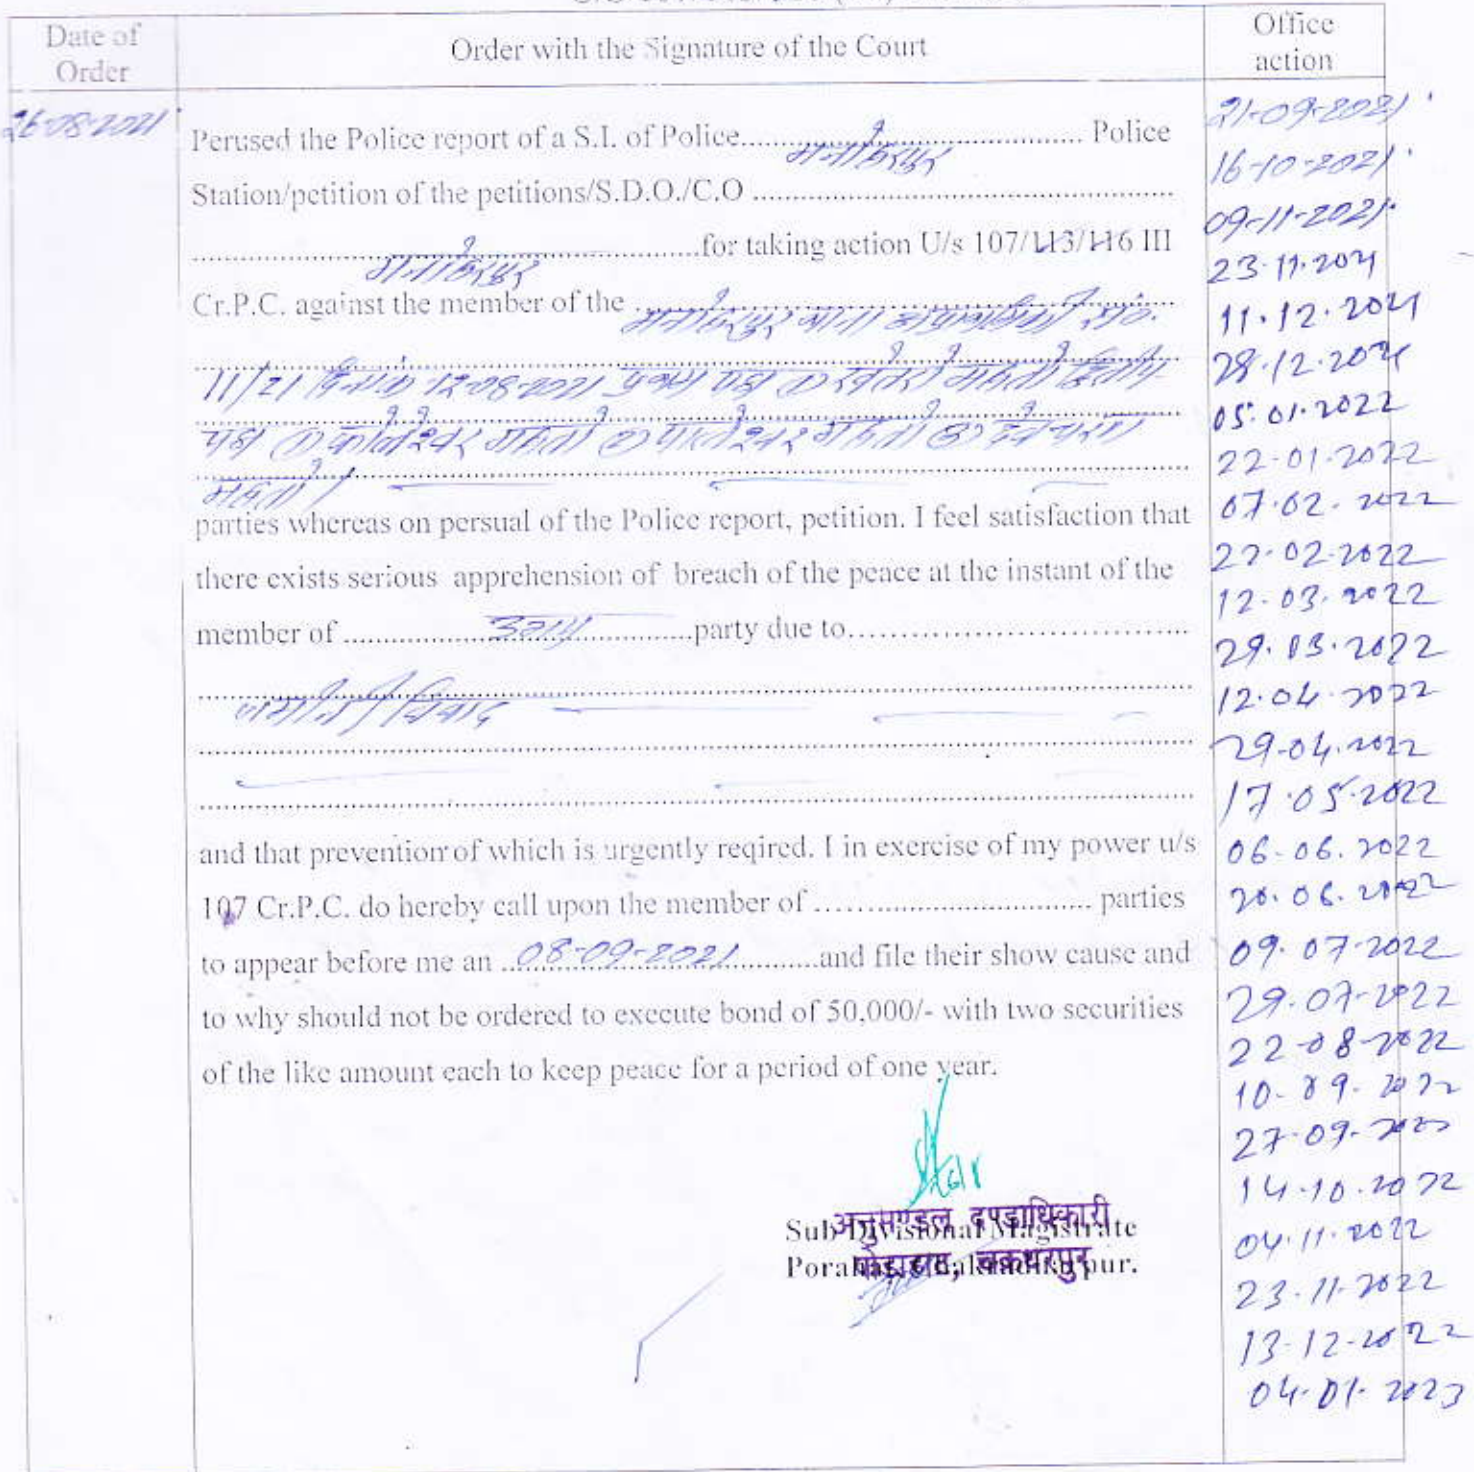 Date of
Order
Order with the Signature of the Court
Office
action
26-08-2021
Perused the Police report of a S.I. of Police.......... मनोहरपुर .......... Police
Station/petition of the petitions/S.D.O./C.O ..........
.......... मनोहरपुर ..........for taking action U/s 107/113/116 III
Cr.P.C. against the member of the .......... मनोहरपुर थाना
11/21 दिनांक 12-08-2021 प्रथम पक्ष ① महतो द्वितीय
पक्ष ① महतो ② महतो ③
महतो
parties whereas on persual of the Police report, petition. I feel satisfaction that
there exists serious apprehension of breach of the peace at the instant of the
member of .......... उभय ..........party due to..........
जमीनी विवाद
and that prevention of which is urgently reqired. I in exercise of my power u/s
107 Cr.P.C. do hereby call upon the member of .......... parties
to appear before me an ..08-09-2021..........and file their show cause and
to why should not be ordered to execute bond of 50,000/- with two securities
of the like amount each to keep peace for a period of one year.
अनुमण्डल दण्डाधिकारी
Sub Divisional Magistrate
पोड़ाहाट, चक्रधरपुर
Porahat, Chakradharpur.
21-09-2021
16-10-2021
09-11-2021
23.11.2021
11.12.2021
28.12.2021
05.01.2022
22-01-2022
07.02.2022
22-02-2022
12.03.2022
29.03.2022
12.04.2022
29.04.2022
17.05.2022
06-06.2022
20.06.2022
09.07-2022
29.07-2022
22-08-2022
10-09-2022
27-09-2022
14.10.2022
04.11.2022
23.11.2022
13-12-2022
04-01-2023